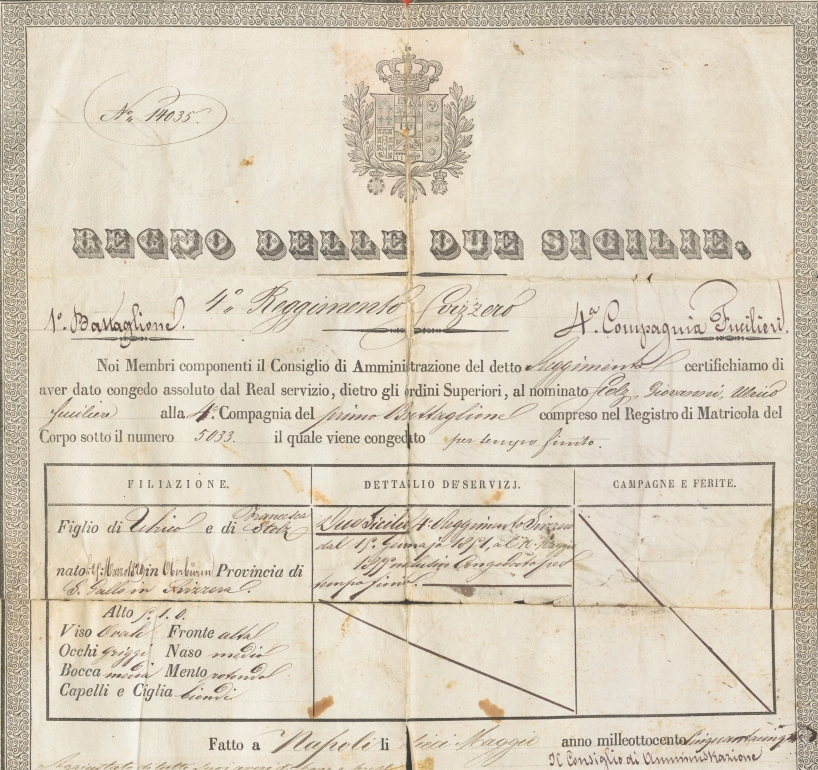 No. 14035.
REGNO DELLE DUE SICILIE.
4º Reggimento Svizzero
1º Battaglione.
4ª Compagnia Fucilieri.
Noi Membri componenti il Consiglio di Amministrazione del detto Reggimento certifichiamo di
aver dato congedo assoluto dal Real servizio, dietro gli ordini Superiori, al nominato Giovanni Ulrico
fuciliere alla 4ª Compagnia del primo Battaglione compreso nel Registro di Matricola del
Corpo sotto il numero 5033. il quale viene congedato per tempo finito.
FILIAZIONE.
Figlio di Ulrico e di Francesca
Stolz
nato in Oberbüren Provincia di
S. Gallo in Svizzera.
Alto
Viso Ovale Fronte alta
Occhi griggi Naso medio
Bocca media Mento rotondo
Capelli e Ciglia biondi
DETTAGLIO DE'SERVIZJ.
Due Sicilie 4º Reggimento Svizzero
dal Gennajo al Maggio
Congedato per
tempo finito.
CAMPAGNE E FERITE.
Fatto a Napoli li dieci Maggio anno milleottocento
Il Consiglio di Amministrazione